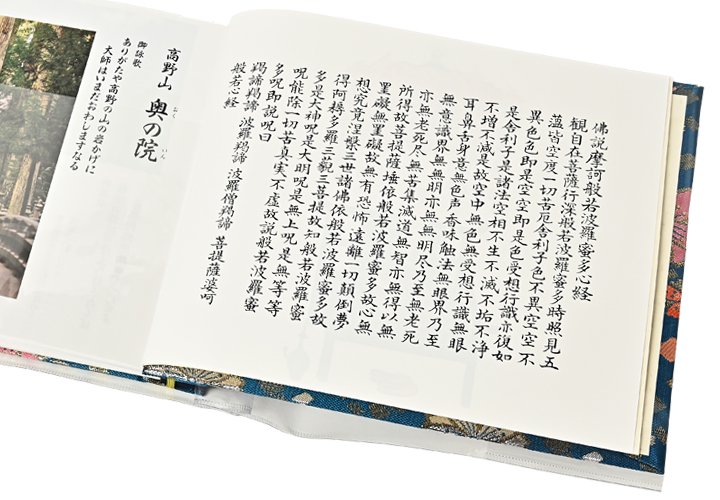 佛説摩訶般若波羅蜜多心経
観自在菩薩行深般若波羅蜜多時照見五
蘊皆空度一切苦厄舎利子色不異空空不
異色色即是空空即是色受想行識亦復如
是舎利子是諸法空相不生不滅不垢不浄
不増不減是故空中無色無受想行識無眼
耳鼻舌身意無色声香味触法無眼界乃至
無意識界無無明亦無無明尽乃至無老死
亦無老死尽無苦集滅道無智亦無得以無
所得故菩提薩埵依般若波羅蜜多故心無
罣礙無罣礙故無有恐怖遠離一切顛倒夢
想究竟涅槃三世諸佛依般若波羅蜜多故
得阿耨多羅三藐三菩提故知般若波羅蜜
多是大神呪是大明呪是無上呪是無等等
呪能除一切苦真実不虚故説般若波羅蜜
多呪即説呪曰
羯諦羯諦 波羅羯諦 波羅僧羯諦 菩提薩婆訶
般若心経
高野山 奥の院
おく いん
御詠歌
ありがたや高野の山の岩かげに
大師はいまだおわしますなる